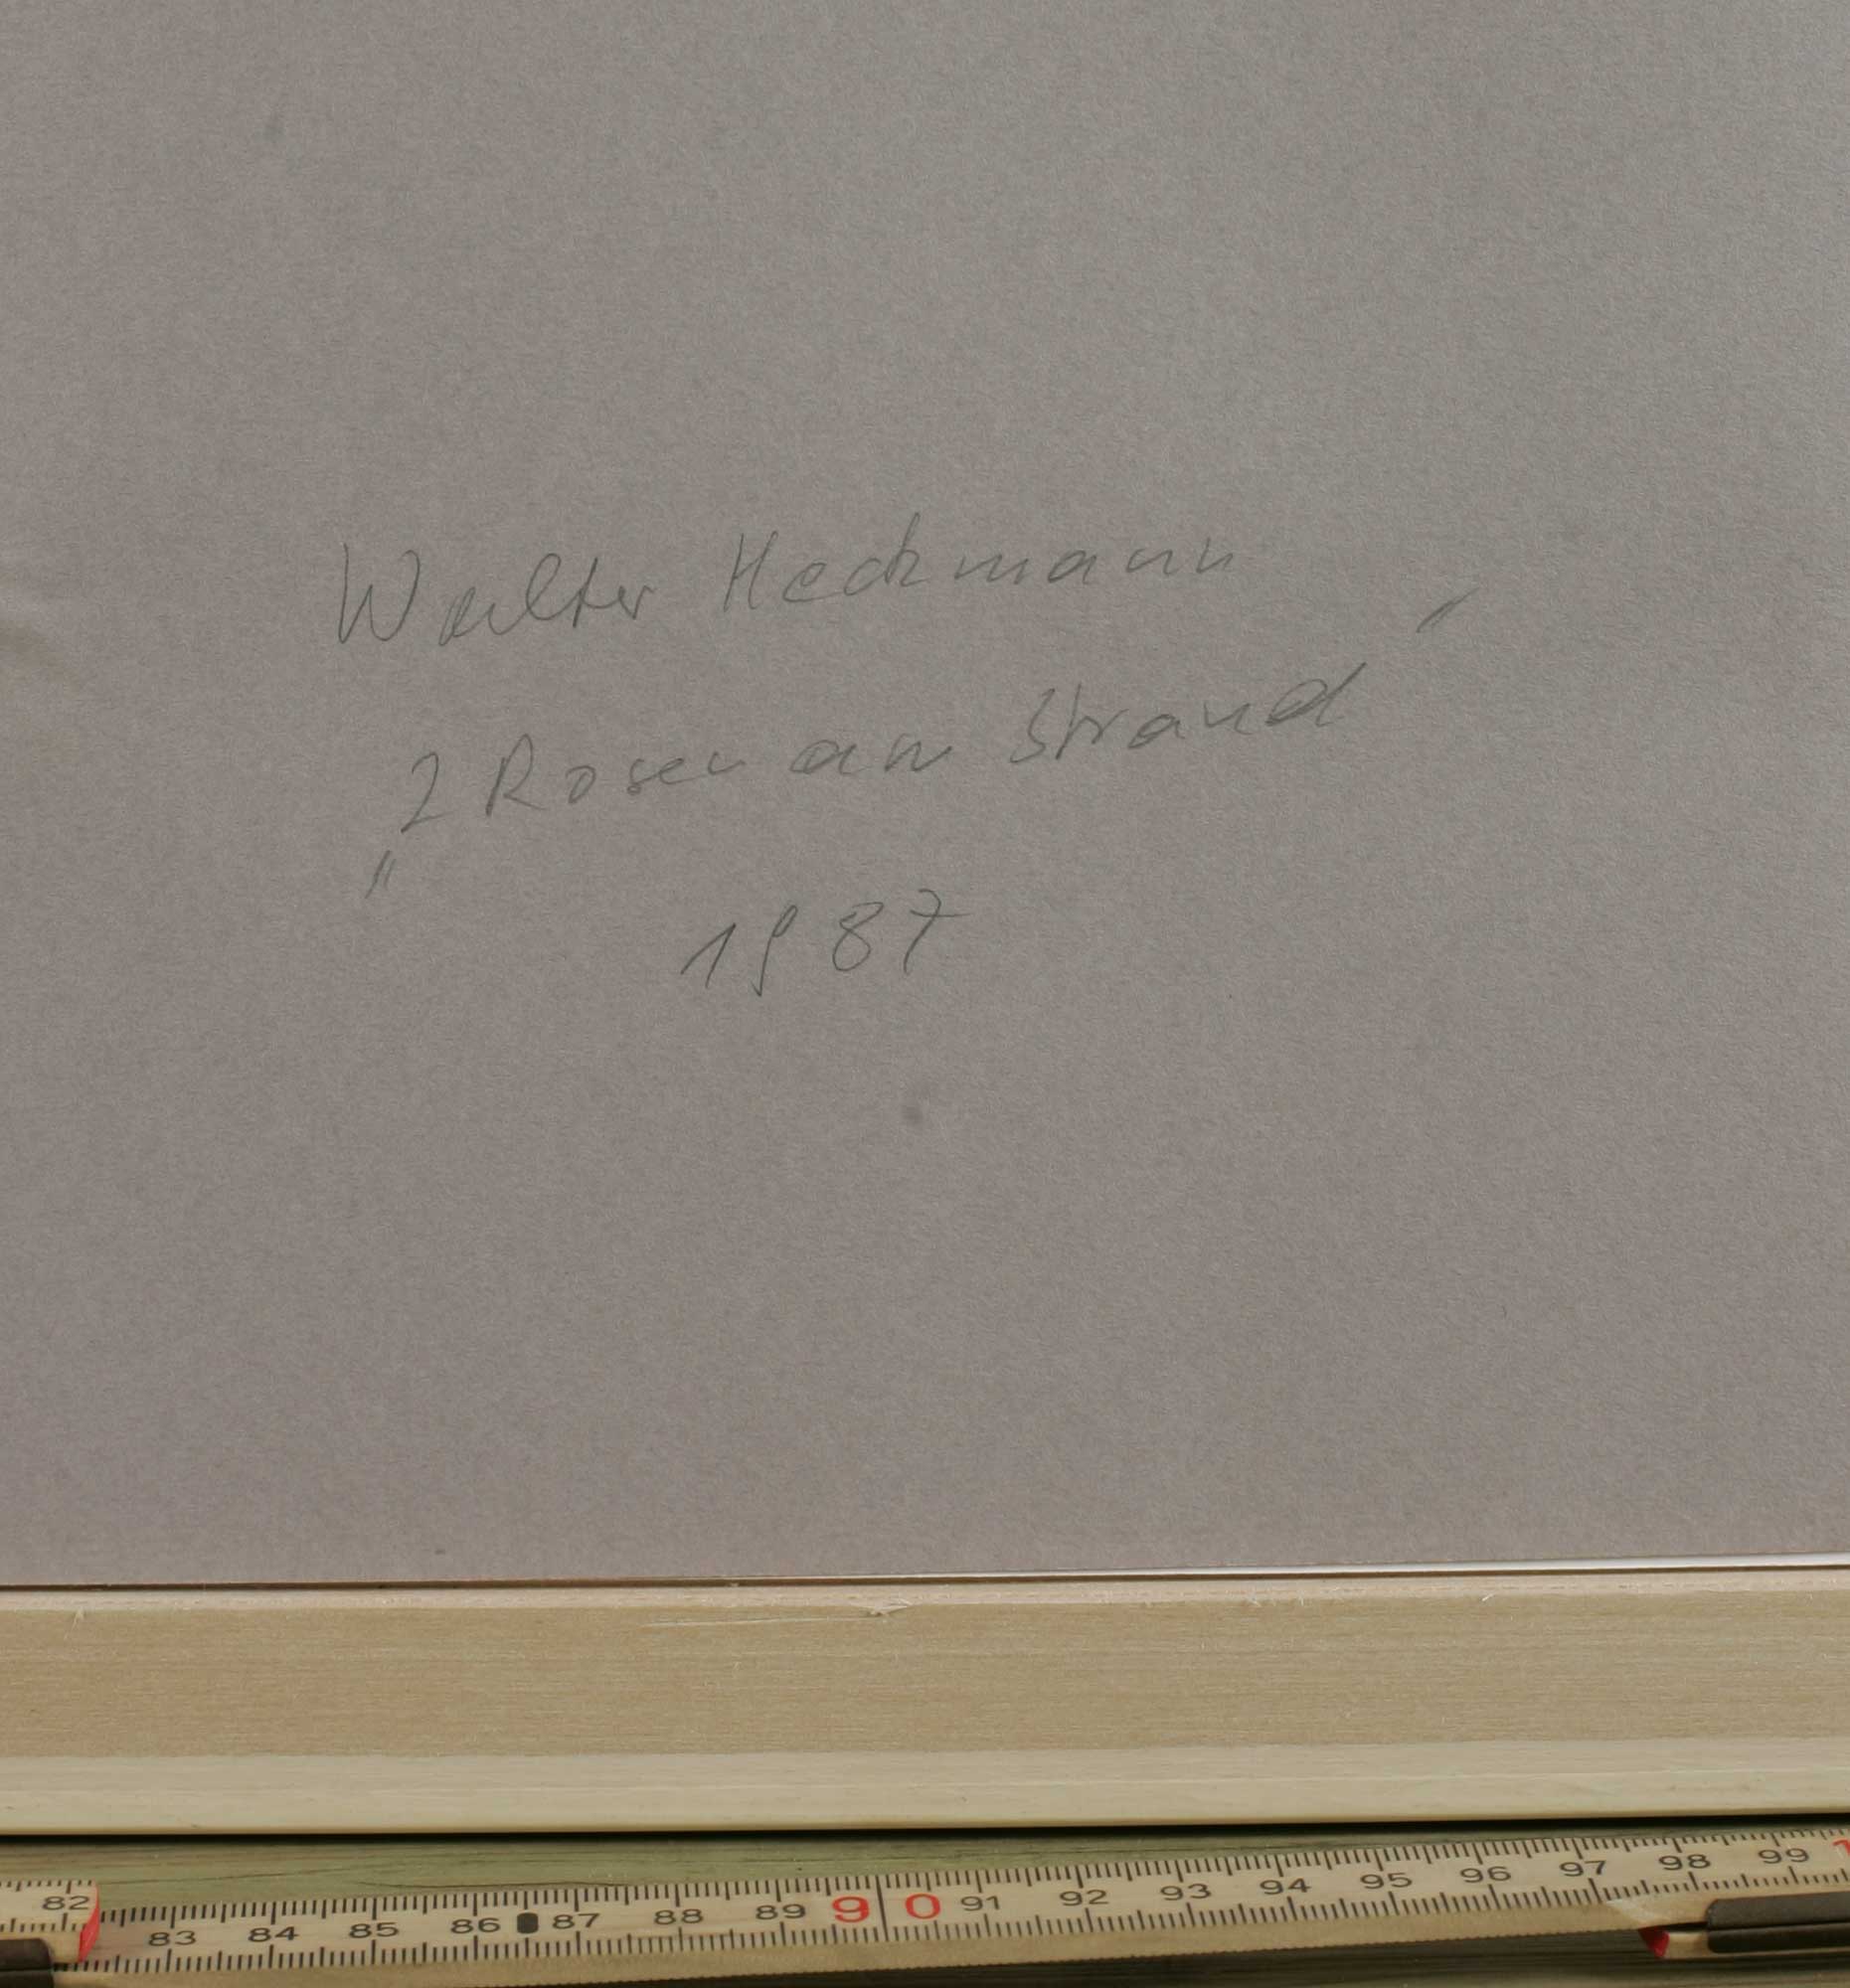 Walter Heckmann
„2 Rosen am Strand“
1987
82 83 84 85 86 87 88 89 90 91 92 93 94 95 96 97 98 99 1